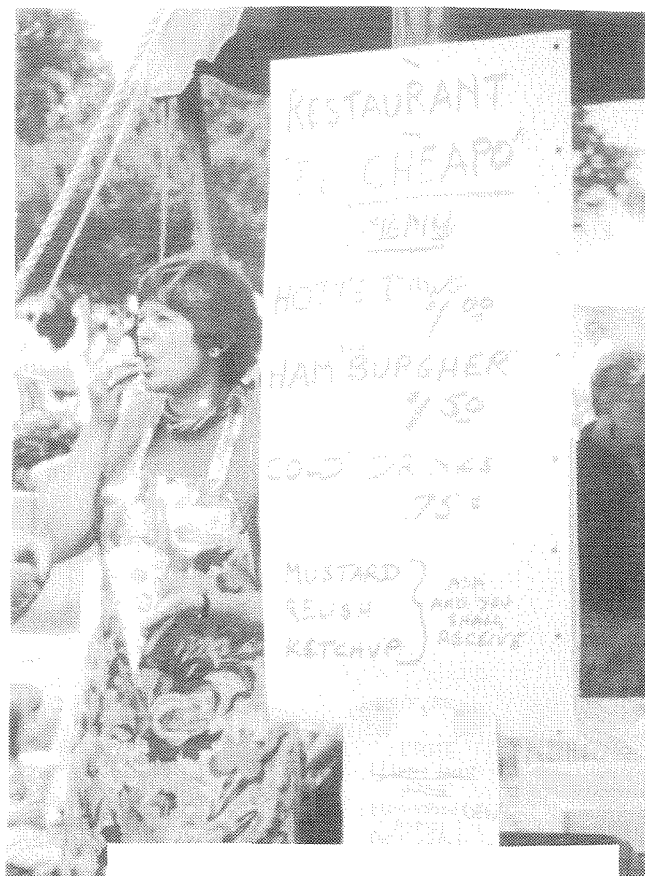 RESTAURANT
"EL CHEAPO"
MENU
HOTTE DAWG
$1.00
HAM BURGHER
$1.50
COLD DRINKS
75¢
MUSTARD
RELISH
KETCHUP
ASK
AND YOU
SHALL
RECEIVE